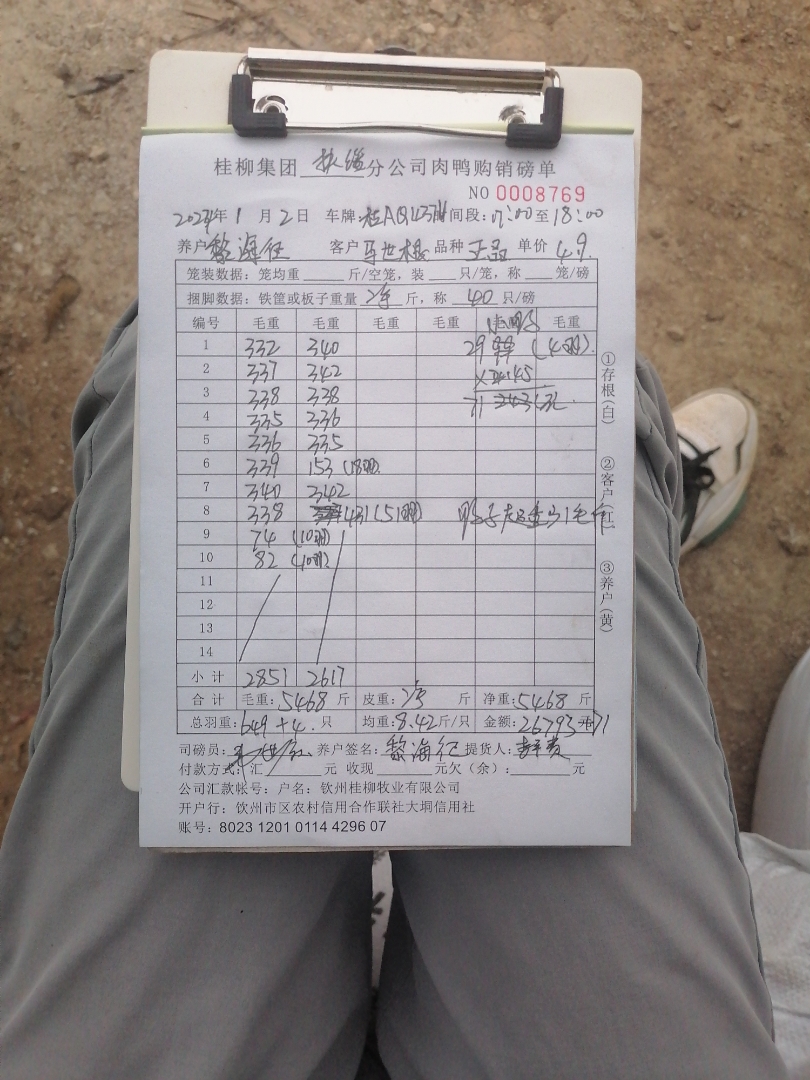 桂柳集团 分公司肉鸭购销磅单
NO 0008769
年 1 月 2 日 车牌: 间段: 17:00 至 18:00
养户 黎海 客户 品种 正品 单价 4.9
笼装数据: 笼均重 斤/空笼, 装 只/笼, 称 笼/磅
捆脚数据: 铁筐或板子重量 斤, 称 40 只/磅
编号 毛重 毛重 毛重 毛重 毛重
1 332 340 29 (4羽)
2 337 342
3 338 338 71
4 335 336
5 336 335
6 339 153 (18羽)
7 340 342
8 338 431 (51羽)
9 74 (10羽)
10 82 (10羽)
11
12
13
14
小计 2851 2617
合计 毛重: 5468 斤 皮重: 斤 净重: 5468 斤
总羽重: 649+4 只 均重: 8.42 斤/只 金额: 26793 元 71
司磅员: 养户签名: 黎海 提货人:
付款方式: 汇 元 收现 元欠(余): 元
公司汇款帐号: 户名: 钦州桂柳牧业有限公司
开户行: 钦州市区农村信用合作联社大垌信用社
账号: 8023 1201 0114 4296 07
①存根(白)
②客户(红)
③养户(黄)